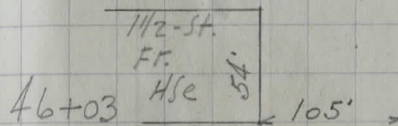 1 1/2-St.
Fr.
Hse
54'
46+03
105'